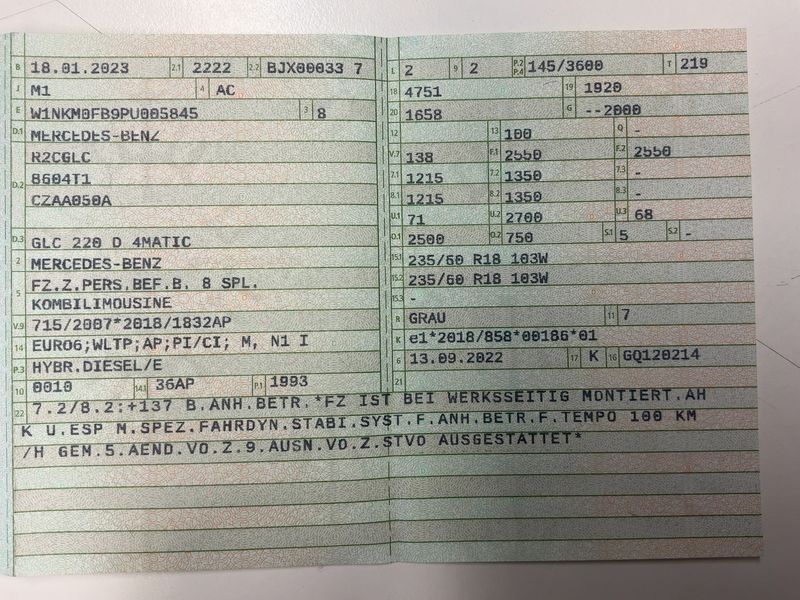 B 18.01.2023 2.1 2222 2.2 BJX00033 7
J M1 4 AC
E W1NKM0FB9PU005845 3 8
D.1 MERCEDES-BENZ
R2CGLC
D.2 8604T1
CZAA050A
D.3 GLC 220 D 4MATIC
2 MERCEDES-BENZ
5 FZ.Z.PERS.BEF.B. 8 SPL.
KOMBILIMOUSINE
V.9 715/2007*2018/1832AP
14 EURO6;WLTP;AP;PI/CI; M, N1 I
P.3 HYBR.DIESEL/E
10 0010 14.1 36AP P.1 1993
L 2 9 2 P.2 P.4 145/3600 T 219
18 4751 19 1920
20 1658 G --2000
12 13 100 Q -
V.7 138 F.1 2550 F.2 2550
7.1 1215 7.2 1350 7.3 -
8.1 1215 8.2 1350 8.3 -
U.1 71 U.2 2700 U.3 68
O.1 2500 O.2 750 S.1 5 S.2 -
15.1 235/60 R18 103W
15.2 235/60 R18 103W
15.3 -
R GRAU 11 7
K e1*2018/858*00186*01
6 13.09.2022 17 K 16 GQ120214
21
22 7.2/8.2:+137 B.ANH.BETR.*FZ IST BEI WERKSSEITIG MONTIERT.AH
K U.ESP M.SPEZ.FAHRDYN.STABI.SYST.F.ANH.BETR.F.TEMPO 100 KM
/H GEM.5.AEND.VO.Z.9.AUSN.VO.Z.STVO AUSGESTATTET*